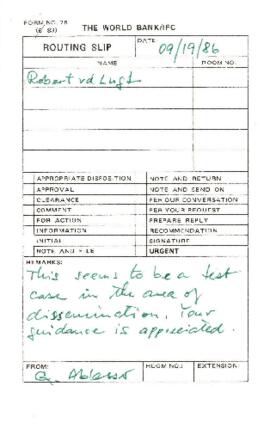 FORM NO. 75
(6-83) THE WORLD BANK/IFC
ROUTING SLIP
DATE
09/19/86
NAME ROOM NO.
Robert vd Lugt
APPROPRIATE DISPOSITION NOTE AND RETURN
APPROVAL NOTE AND SEND ON
CLEARANCE PER OUR CONVERSATION
COMMENT PER YOUR REQUEST
FOR ACTION PREPARE REPLY
INFORMATION RECOMMENDATION
INITIAL SIGNATURE
NOTE AND FILE URGENT
REMARKS:
This seems to be a test
case in the area of
dissemination. Your
guidance is appreciated.
FROM: ROOM NO.: EXTENSION: